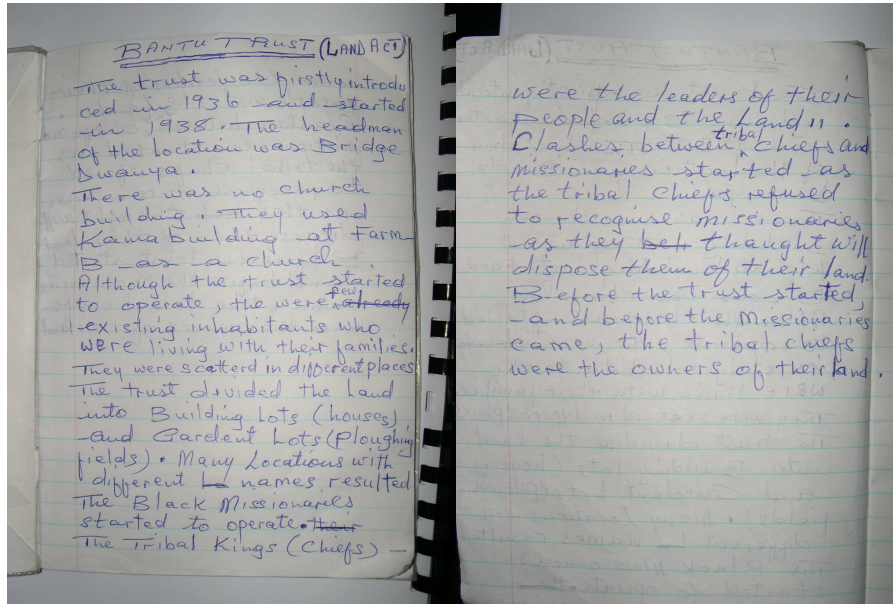 BANTU TRUST (LAND ACT)
The trust was firstly introdu
ced in 1936 and started
in 1938. The headman
of the location was Bridge
Swanya.
There was no church
building. They used
Kama building at Farm
B as a church
Although the trust started
to operate, the were few already
existing inhabitants who
were living with their families.
They were scatterd in different places
The trust divided the Land
into Building Lots (houses)
and Gardent Lots (Ploughing
fields). Many Locations with
different names resulted
The Black Missionaries
started to operate. their
The Tribal Kings (Chiefs) —
were the leaders of their
people and the Land 11.
Clashes, between tribal chiefs and
missionaries started as
the tribal chiefs refused
to recognise missionaries
as they thaught will
dispose them of their land.
Before the trust started,
and before the Missionaries
came, the tribal chiefs
were the owners of their land.